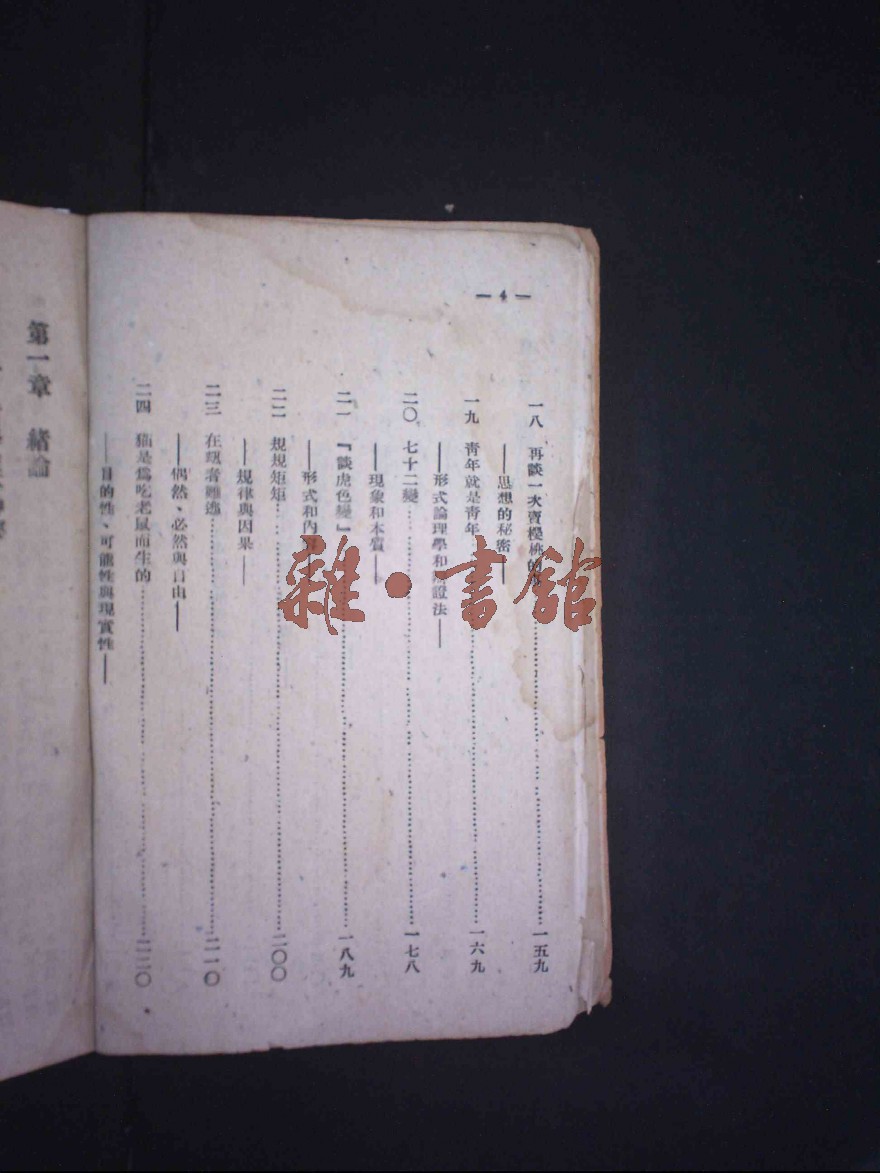 — 4 —
一八 再談一次賣櫻桃的……一五九
——思想的秘密——
一九 青年就是青年……一六九
——形式論理學和辯證法——
二〇 七十二變……一七八
——現象和本質——
二一 『談虎色變』……一八九
——形式和內
二二 規規矩矩……二〇〇
——規律與因果——
二三 在
難逃……二一〇
——偶然、必然與自由——
二四 猫是爲吃老鼠而生的……二二〇
——目的性、可能性與現實性——
第一章 緒論
雜·書館